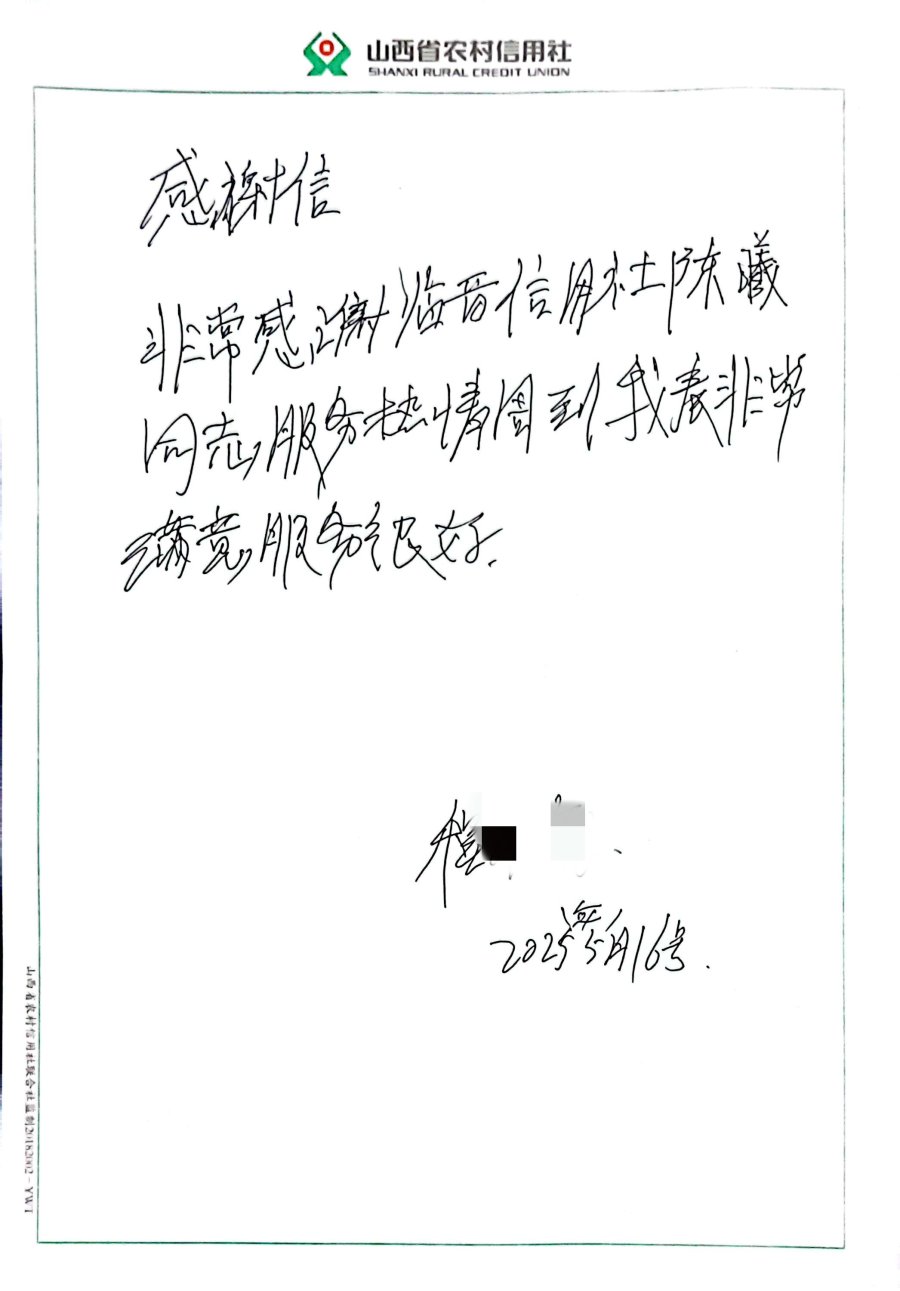 山西省农村信用社
SHANXI RURAL CREDIT UNION
感谢信
非常感谢临晋信用社陈曦
同志服务热情周到我表非常
满意服务很好.
程
2025年5月16号.
山西省农村信用社联合社监制20182002-YW1